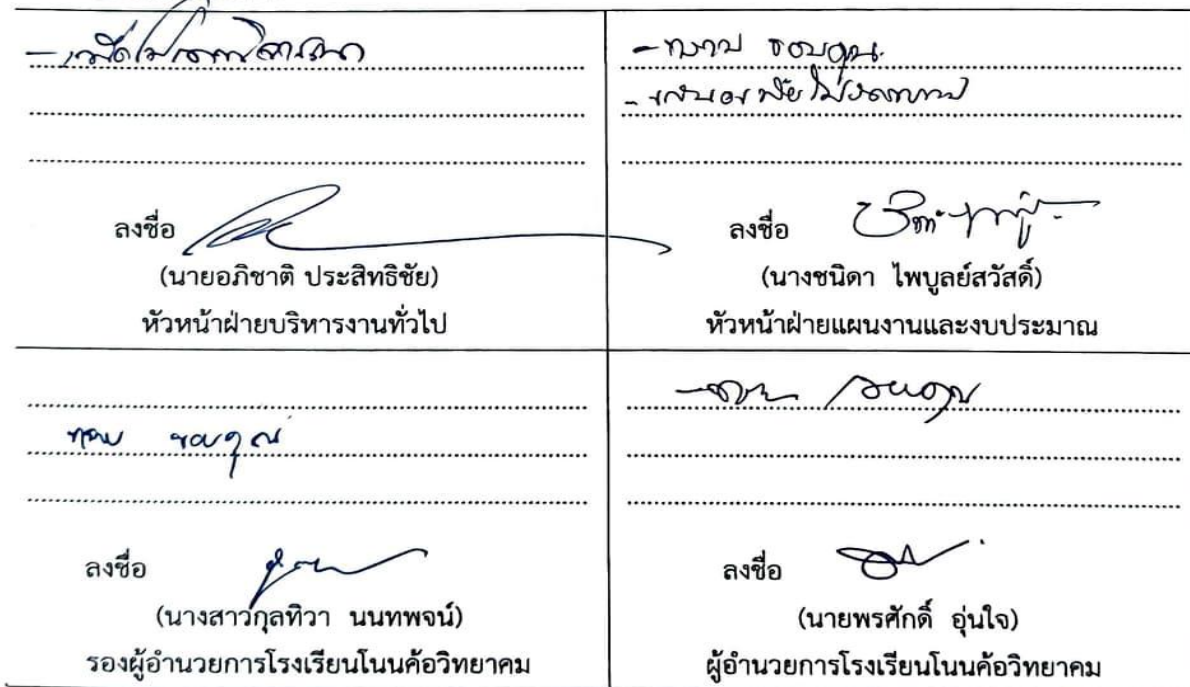 - ทราบ ขอบคุณ
ลงชื่อ
(นายอภิชาติ ประสิทธิชัย)
หัวหน้าฝ่ายบริหารงานทั่วไป
ลงชื่อ
(นางชนิดา ไพบูลย์สวัสดิ์)
หัวหน้าฝ่ายแผนงานและงบประมาณ
ทราบ ขอบคุณ
- ทราบ ขอบคุณ
ลงชื่อ
(นางสาวกุลทิวา นนทพจน์)
รองผู้อำนวยการโรงเรียนโนนค้อวิทยาคม
ลงชื่อ
(นายพรศักดิ์ อุ่นใจ)
ผู้อำนวยการโรงเรียนโนนค้อวิทยาคม